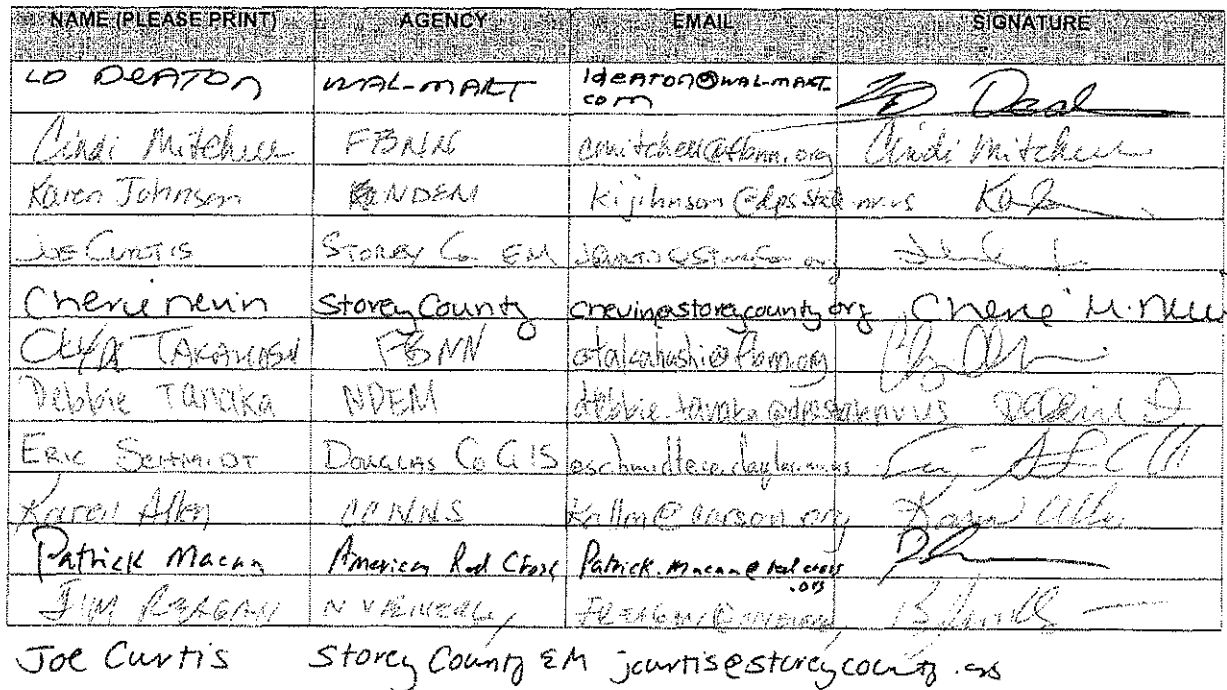 NAME (PLEASE PRINT) AGENCY EMAIL SIGNATURE
LD DEATON WAL-MART ldeaton@wal-mart.com LD Deat
Cindi Mitchell FBNN cmitchell@fbnn.org Cindi Mitchell
Karen Johnson NDEM kijihnson@dps.state.nv.us
Joe Curtis Storey Co. EM
Cherie Nevin Storey County cnevin@storeycounty.org Cherie M. Nevin
TAKAHASHI FBNN otakahashi@fbnn.org
Debbie Tanaka NDEM debbie.tanaka@dps.state.nv.us
Eric Schmidt Douglas Co GIS
Karen Allen Karen Allen
Patrick Macan American Red Cross Patrick.macan@redcross.org
JIM REAGAN
Joe Curtis Storey County EM jcurtis@storeycounty.org